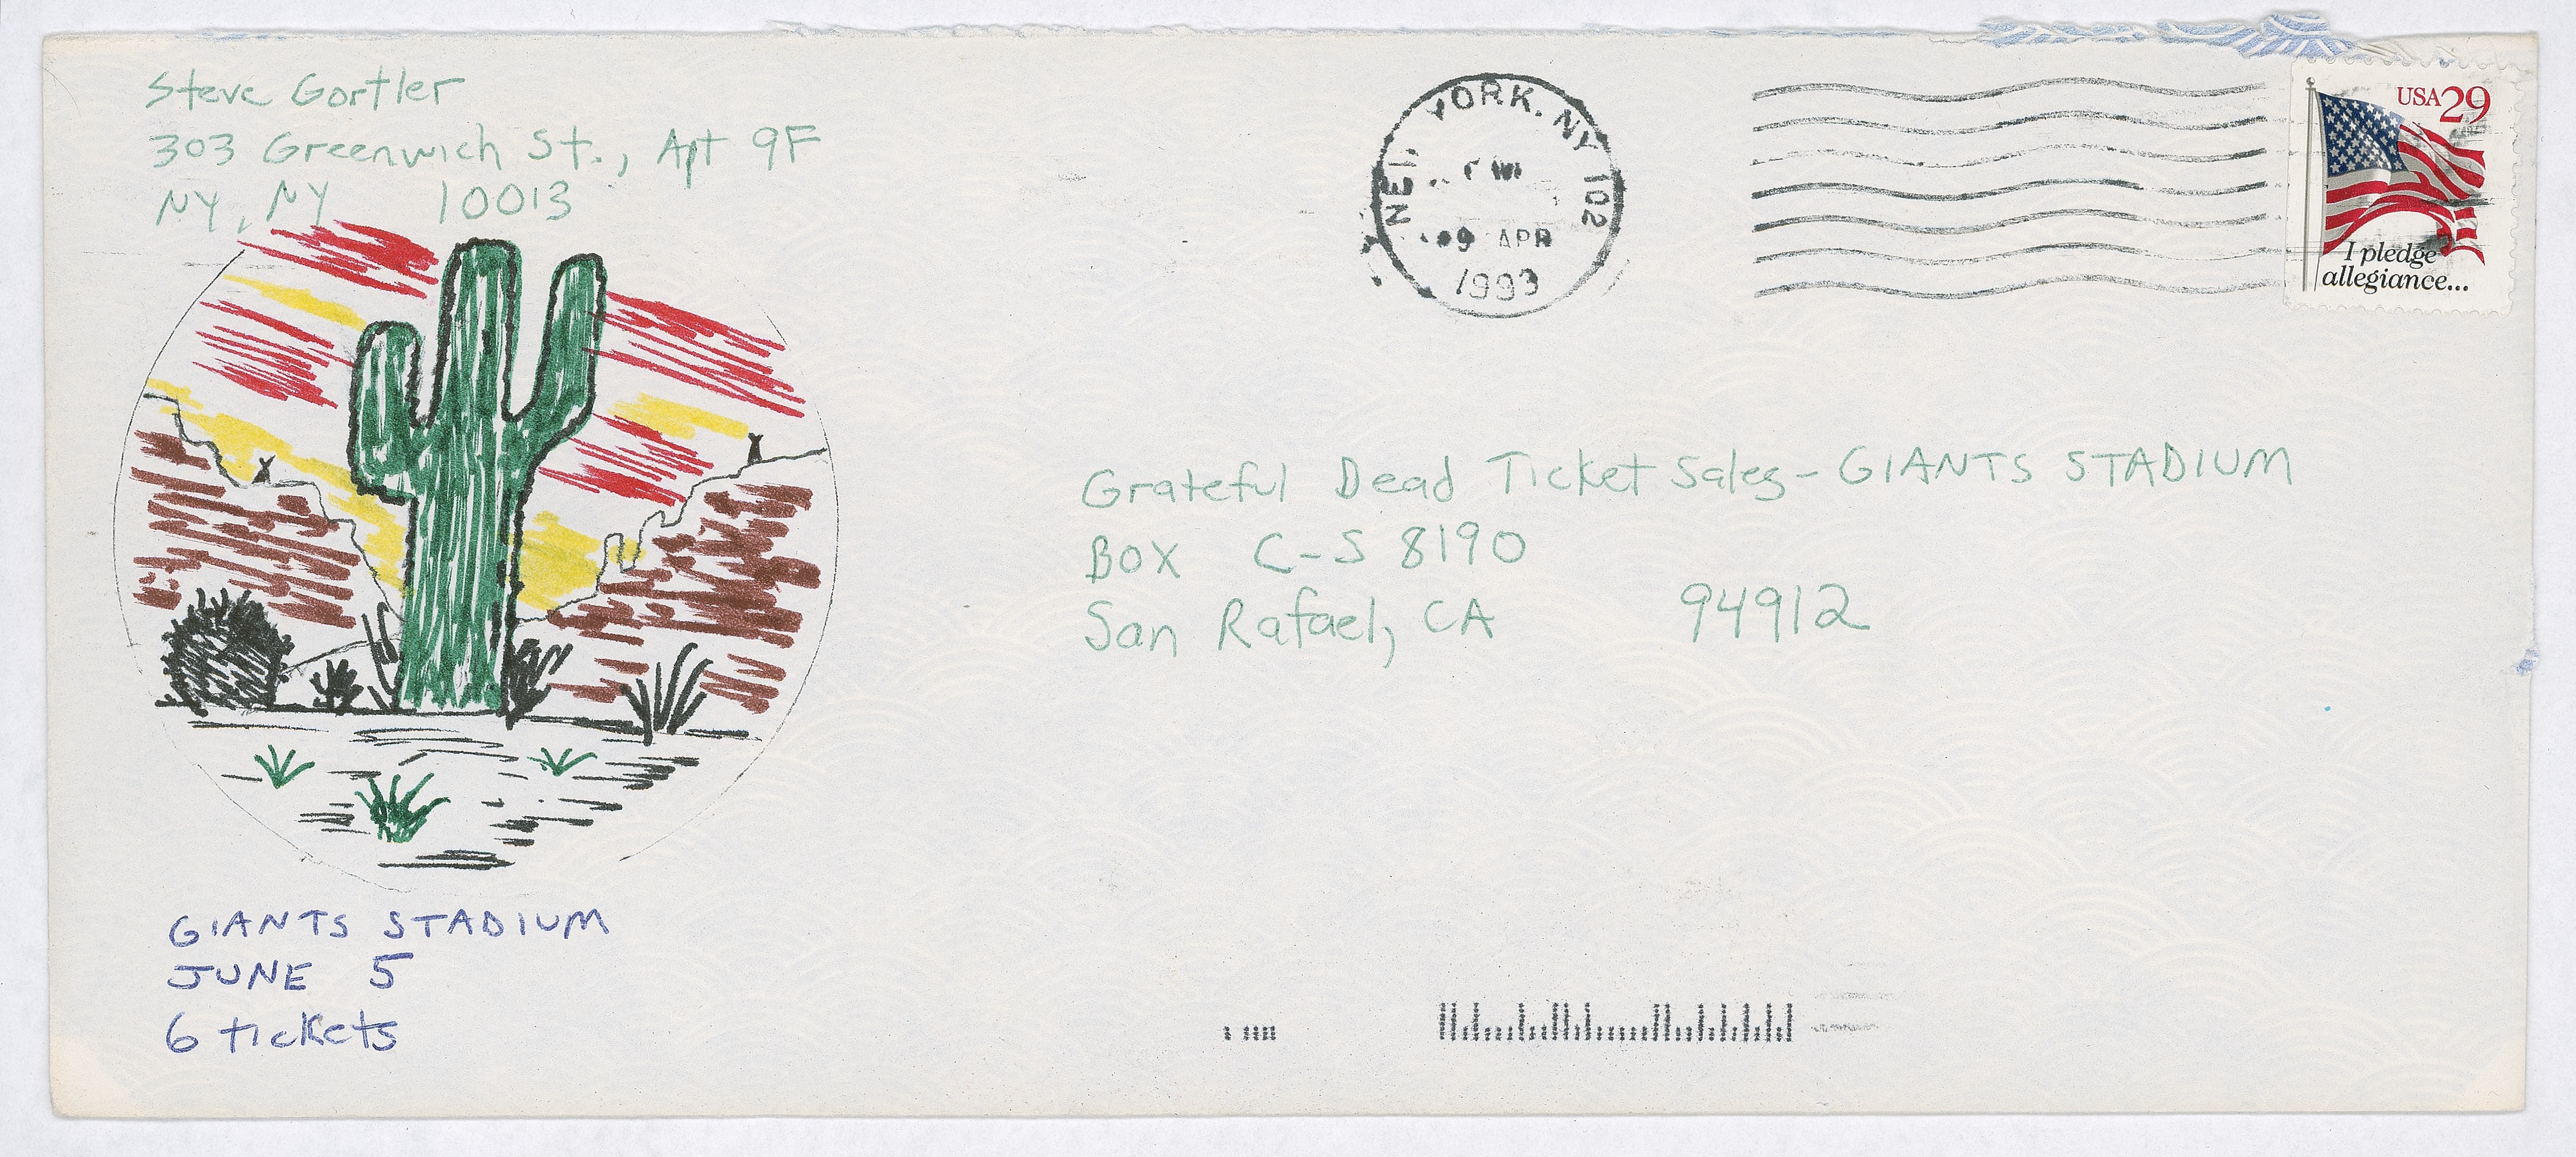 Steve Gortler
303 Greenwich St., Apt 9F
NY, NY 10013
YORK, NY 102
9 APR
1993
USA 29
I pledge
allegiance...
Grateful Dead Ticket Sales - GIANTS STADIUM
BOX C-S 8190
San Rafael, CA 94912
GIANTS STADIUM
JUNE 5
6 tickets